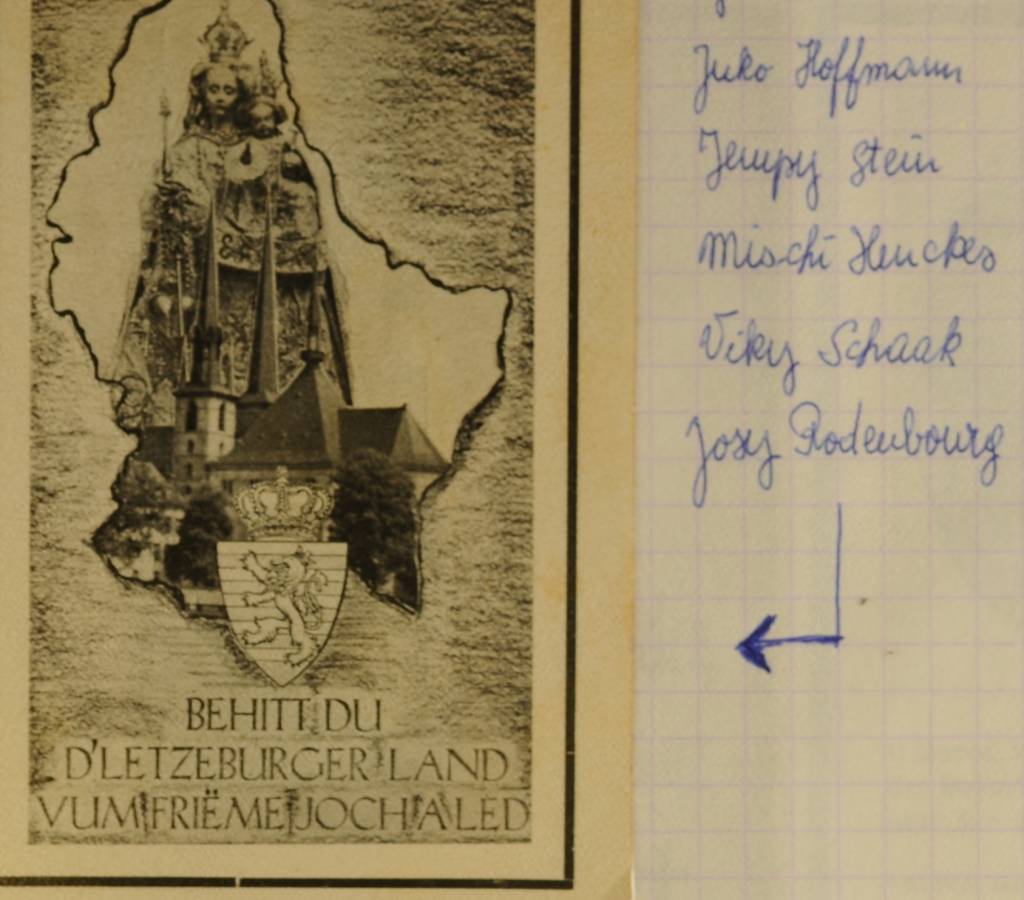 Juko Hoffmann
Jempy Stein
Mischi Henckes
Viky Schaak
Josy Rodenbourg
BEHITT DU
D'LETZEBURGER LAND
VUM FRIËME JOCH A LED